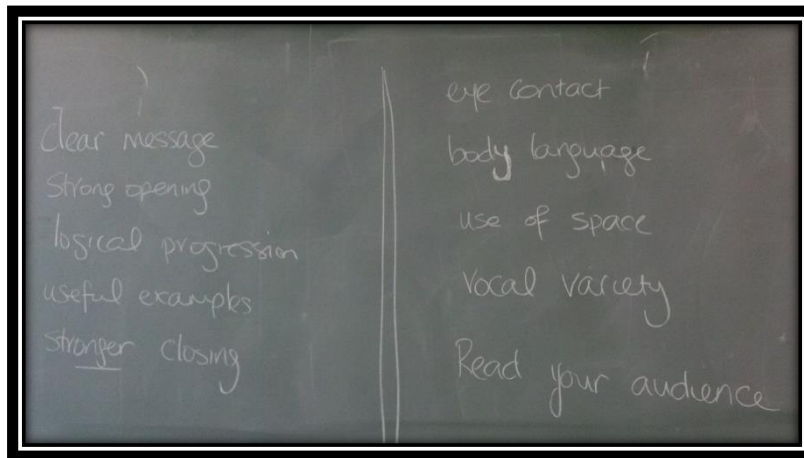 clear message
Strong opening
logical progression
useful examples
stronger closing
eye contact
body language
use of space
Vocal variety
Read your audience